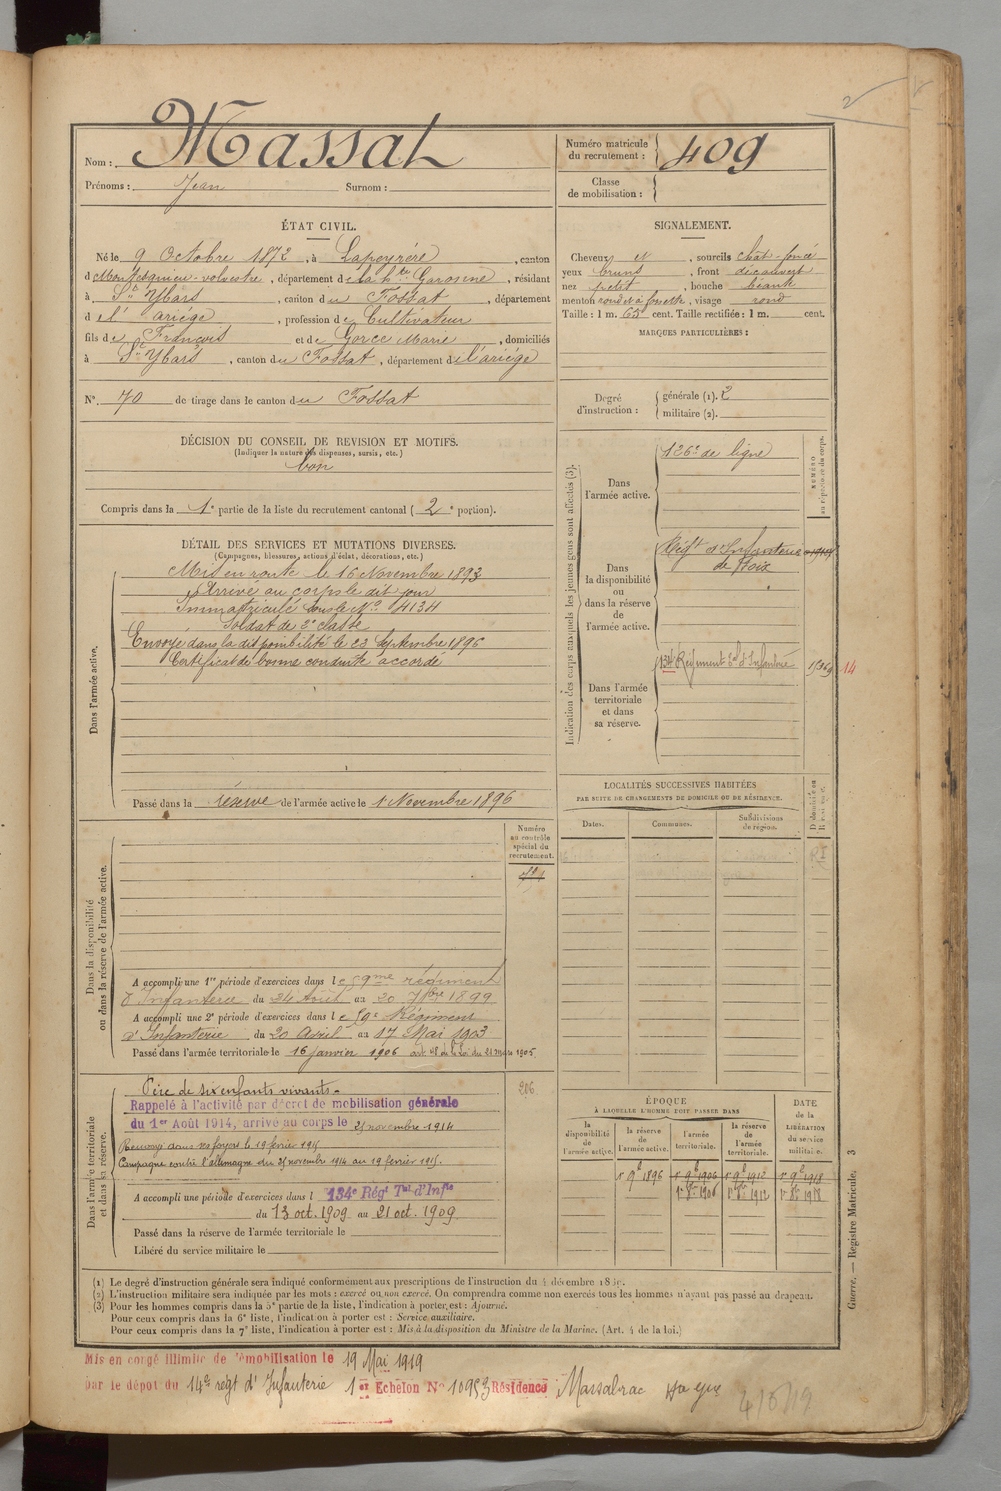 Nom : Massat
Prénoms : Jean Surnom :
Numéro matricule
du recrutement : 409
Classe
de mobilisation :
ÉTAT CIVIL.
Né le 9 Octobre 1872, à Lapeyrére, canton
de Montesquieu-volvestre, département de la hte Garonne, résidant
à St Ybars, canton du Fossat, département
de l'ariége, profession de Cultivateur
fils de François et de Gorce Marie, domiciliés
à St Ybars, canton du Fossat, département de l'ariége
N° 70 de tirage dans le canton du Fossat
DÉCISION DU CONSEIL DE REVISION ET MOTIFS.
(Indiquer la nature des dispenses, sursis, etc.)
bon
Compris dans la 1e partie de la liste du recrutement cantonal (2e portion).
SIGNALEMENT.
Cheveux N, sourcils chat-foncé
yeux bruns, front découvert
nez petit, bouche béante
menton rond et à fossette, visage rond
Taille : 1 m. 65 cent. Taille rectifiée : 1 m. cent.
MARQUES PARTICULIÈRES :
Degré
d'instruction :
générale (1). 2
militaire (2).
DÉTAIL DES SERVICES ET MUTATIONS DIVERSES.
(Campagnes, blessures, actions d'éclat, décorations, etc.)
Dans l'armée active.
Mis en route le 16 Novembre 1893
Arrivé au corps le dit jour
Immatriculé sous le No 4134
Soldat de 2e classe
Envoyé dans la disponibilité le 23 Septembre 1896
Certificat de bonne conduite accordé
Passé dans la réserve de l'armée active le 1 Novembre 1896
Indication des corps auxquels les jeunes gens sont affectés (3).
NUMÉRO
au répertoire du corps.
Dans
l'armée active.
126e de ligne
Dans
la disponibilité
ou
dans la réserve
de
l'armée active.
Régt d'Infanterie
de Foix
Dans l'armée
territoriale
et dans
sa réserve.
134 Régiment Tal d'Infanterie
14
LOCALITÉS SUCCESSIVES HABITÉES
PAR SUITE DE CHANGEMENTS DE DOMICILE OU DE RÉSIDENCE.
Dates. Communes. Subdivisions
de région.
D. domicile ou
R. résidence.
Dans la disponibilité
ou dans la réserve de l'armée active.
Numéro
au contrôle
spécial du
recrutement.
A accompli une 1re période d'exercices dans le 59me régiment
d'Infanterie du 24 Août au 20 7bre 1899
A accompli une 2e période d'exercices dans le 59e Régiment
d'Infanterie du 20 Avril au 17 Mai 1903
Passé dans l'armée territoriale le 16 janvier 1906 art. 48 de la Loi du 21 mars 1905.
Dans l'armée territoriale
et dans sa réserve.
206
Père de six enfants vivants.
Rappelé à l'activité par décret de mobilisation générale
du 1er Août 1914, arrivé au corps le 25 novembre 1914
Renvoyé dans ses foyers le 19 février 1915
Campagne contre l'allemagne du 25 novembre 1914 au 19 février 1915.
A accompli une période d'exercices dans l 134e Régt Tal d'Infie
du 13 oct. 1909 au 21 oct. 1909
Passé dans la réserve de l'armée territoriale le
Libéré du service militaire le
ÉPOQUE
À LAQUELLE L'HOMME DOIT PASSER DANS
la
disponibilité
de
l'armée active.
la réserve
de
l'armée active.
l'armée
territoriale.
la réserve
de
l'armée
territoriale.
DATE
de la
LIBÉRATION
du service
militaire.
1r 9b 1896 1r 9b 1906 1r 9b 1912 1r 9b 1918
1r 8b 1906 1r 8b 1912 1r 8b 1918
(1) Le degré d'instruction générale sera indiqué conformément aux prescriptions de l'instruction du 4 décembre 1889.
(2) L'instruction militaire sera indiquée par les mots : exercé ou non exercé. On comprendra comme non exercés tous les hommes n'ayant pas passé au drapeau.
(3) Pour les hommes compris dans la 5e partie de la liste, l'indication à porter est : Ajourné.
Pour ceux compris dans la 6e liste, l'indication à porter est : Service auxiliaire.
Pour ceux compris dans la 7e liste, l'indication à porter est : Mis à la disposition du Ministre de la Marine. (Art. 4 de la loi.)
Guerre. — Registre Matricule. 3
Mis en congé illimité de démobilisation le 19 Mai 1919
par le dépot du 14e régt d'Infanterie 1er Echelon No 10953 Résidence Massabrac